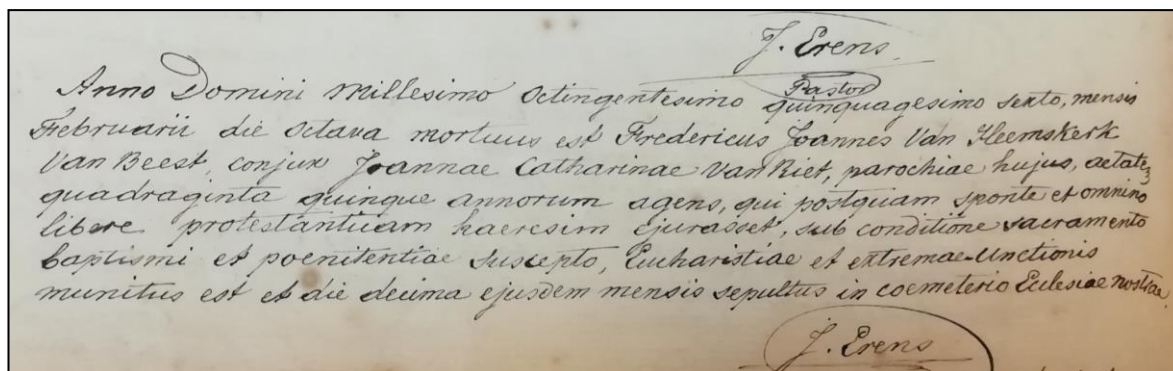 J. Erens
Pastor
Anno Domini Millesimo Octingentesimo quinquagesimo sexto, mensis
Februarii die Octava mortuus est Fredericus Joannes Van Heemskerk
Van Beest, conjux Joannae Catharinae Van Riet, parochiae hujus, aetate
quadraginta quinque annorum agens, qui postquam sponte et omnino
libere protestanticam haeresim ejurasset, sub conditione sacramento
baptismi et poenitentiae suscepto, Eucharistiae et extremae-Unctionis
munitus est et die decima ejusdem mensis sepultus in coemeterio Eclesiae nostrae
J. Erens